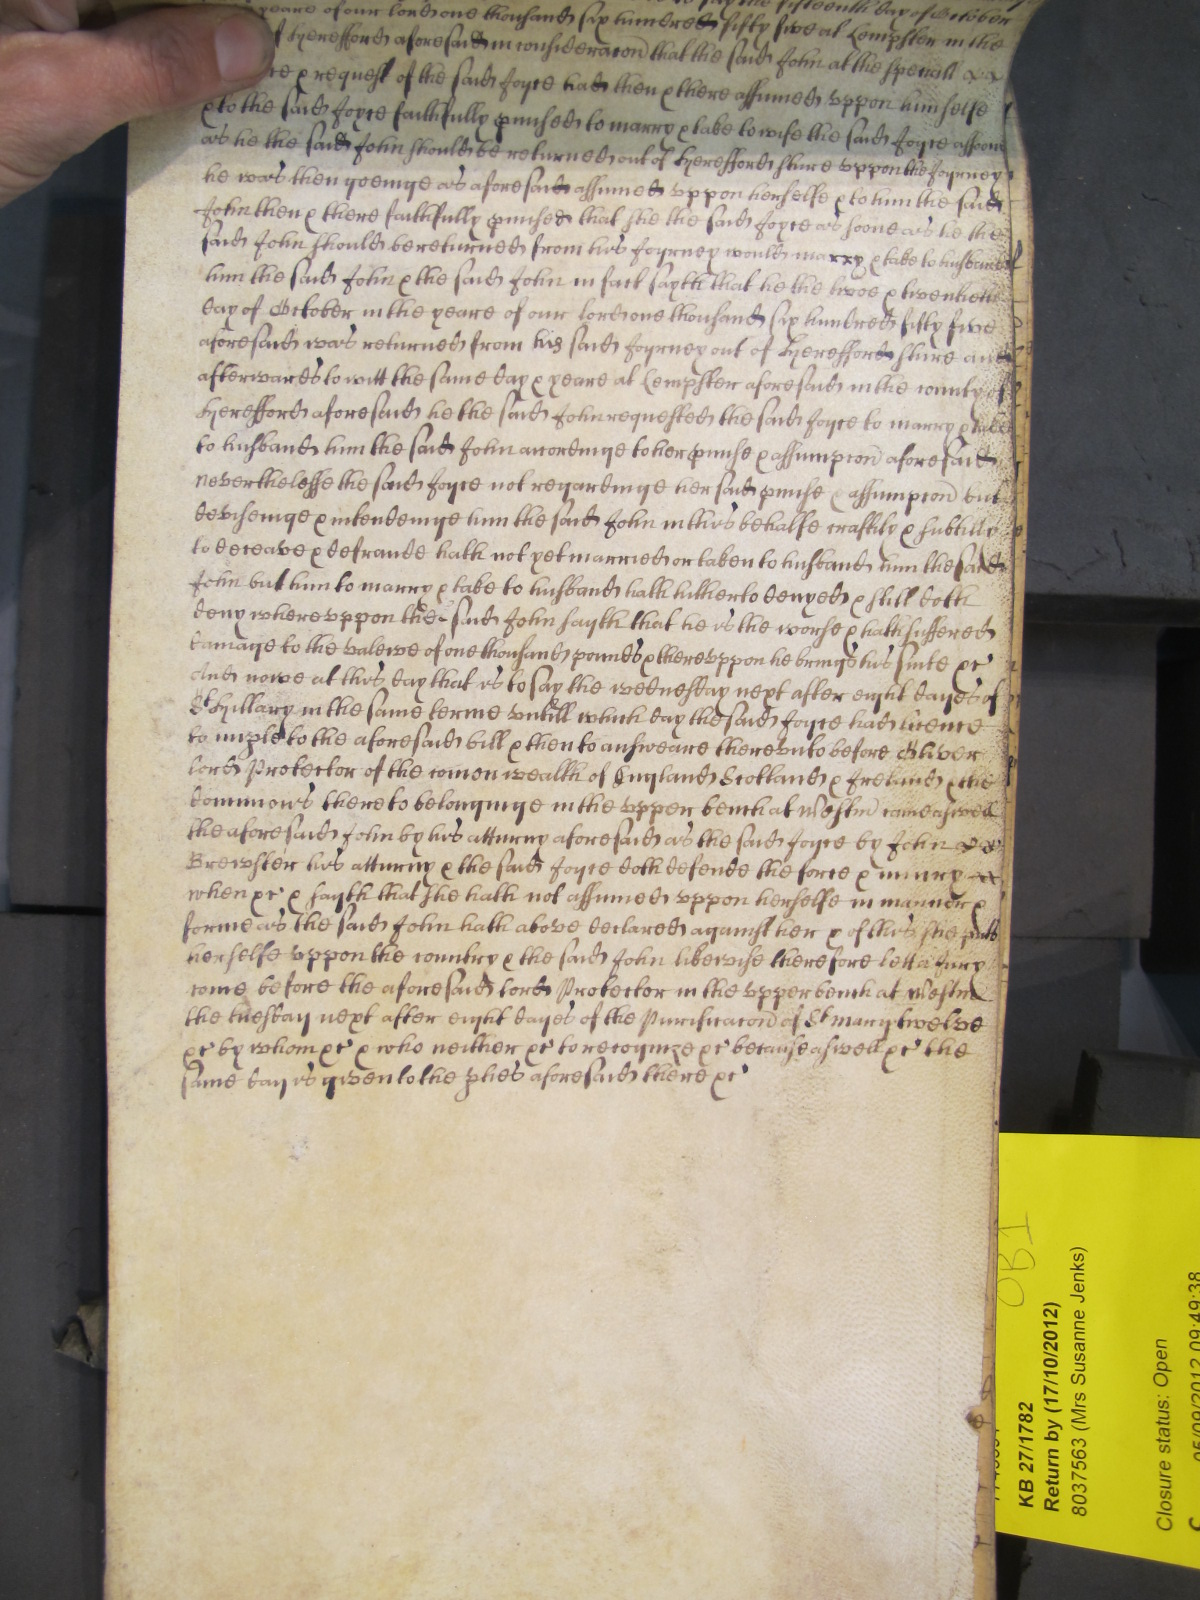 say the fifteenth day of October
yeare of our lord one thousand six hundred fifty five at Lempster in the
of Hereford aforesaid in consideracon that the said John at the speciall
& request of the said Joyce had then & there assumed uppon himselfe
& to the said Joyce faithfully pmised to marry & take to wife the said Joyce assoone
as he the said John should be returned out of Herefford shire uppon the Joyrney
he was then goeinge as aforesaid assumed uppon herselfe & to him the said
John then & there faithfully pmised that she the said Joyce as soone as he the
said John should be returned from his Joyrney would marry & take to husband
him the said John & the said John in fact sayth that he the twoe & twentieth
day of October in the yeare of our lord one thousand six hundred fifty five
aforesaid was returned from his said Joyrney out of Herefford shire and
afterwards to witt the same day & yeare at Lempster aforesaid in the county of
Herefford aforesaid he the said John requested the said Joyce to marry & take
to husband him the said John accordinge to her pmise & assumpcon aforesaid
neverthelesse the said Joyce not regardinge her said pmise & assumpcon but
deviseinge & intendeinge him the said John in this behalfe craftily & subtilly
to deceave & defraude hath not yet married or taken to husband him the said
John but him to marry & take to husband hath hitherto denyed & still doth
deny whereuppon the said John sayth that he is the worse & hath suffered
damage to the valewe of one thousand pounds & thereuppon he brings his suite &c
And nowe at this day that is to say the wednesday next after eight dayes of
St Hillary in the same terme untill which day the said Joyce had licence
to imple to the aforesaid bill & then to answeare thereunto before Oliver
Lord Protector of the comon wealth of England Scotland & Ireland & the
dominions thereto belonginge in the upper bench at Westm came aswell
the aforesaid John by his atturny aforesaid as the said Joyce by John
Brewster his atturny & the said Joyce doth defende the force & iniury
when &c & sayth that she hath not assumed uppon herselfe in manner &
forme as the said John hath above declared against her & of this she putts
herselfe uppon the country & the said John likewise therefore lett a Jury
come before the aforesaid Lord Protector in the upper bench at Westm
the tuesday next after eight dayes of the Purificacon of St Mary twelve
&c by whom &c & who neither &c to recognize &c because aswell &c the
same day is given to the pties aforesaid there &c
OB1
KB 27/1782
Return by (17/10/2012)
8037563 (Mrs Susanne Jenks)
Closure status: Open
05/09/2012 09:49:38